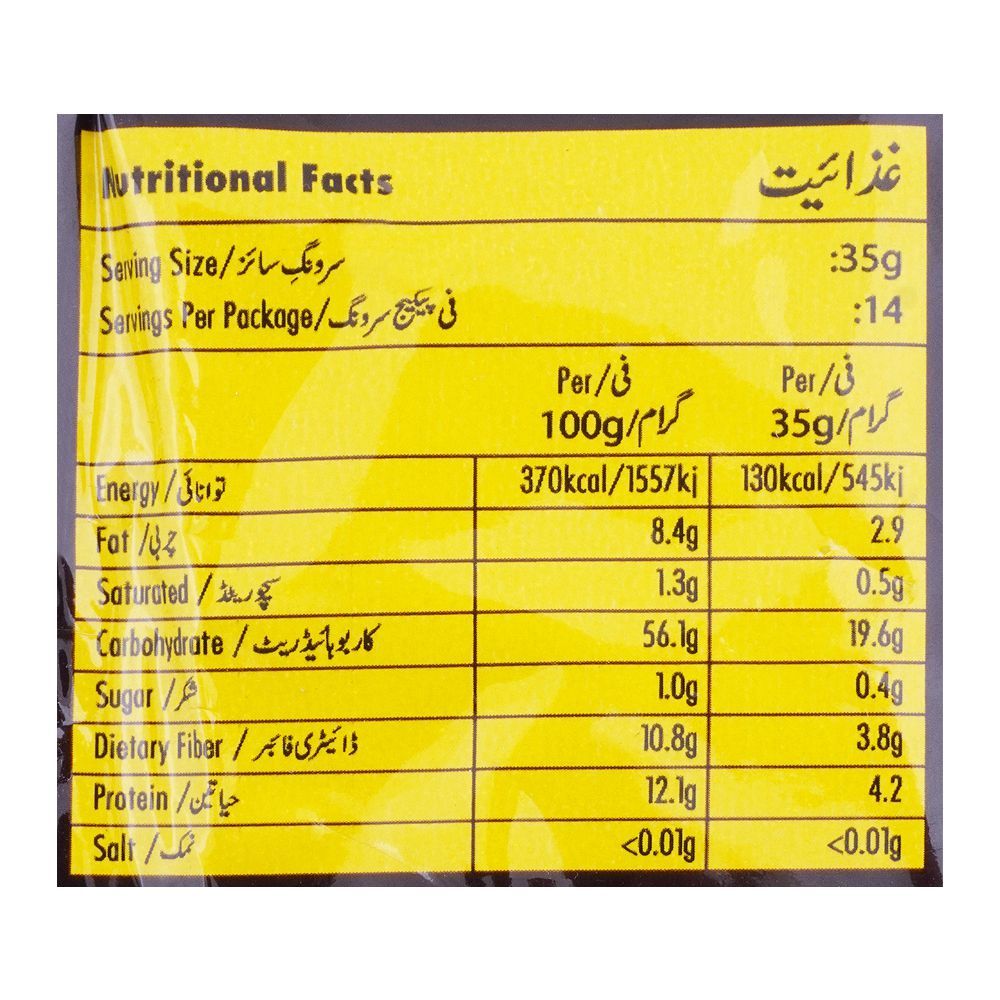 Nutritional Facts غذائیت
Serving Size/سرونگ سائز :35g
Servings Per Package/فی پیکیج سرونگ :14
Per/فی Per/فی
100g/گرام 35g/گرام
Energy/توانائی 370kcal/1557kj 130kcal/545kj
Fat /چربی 8.4g 2.9
Saturated /سیچوریٹڈ 1.3g 0.5g
Carbohydrate / کاربوہائیڈریٹ 56.1g 19.6g
Sugar /شکر 1.0g 0.4g
Dietary Fiber / ڈائیٹری فائبر 10.8g 3.8g
Protein /حیاتین 12.1g 4.2
Salt /نمک <0.01g <0.01g